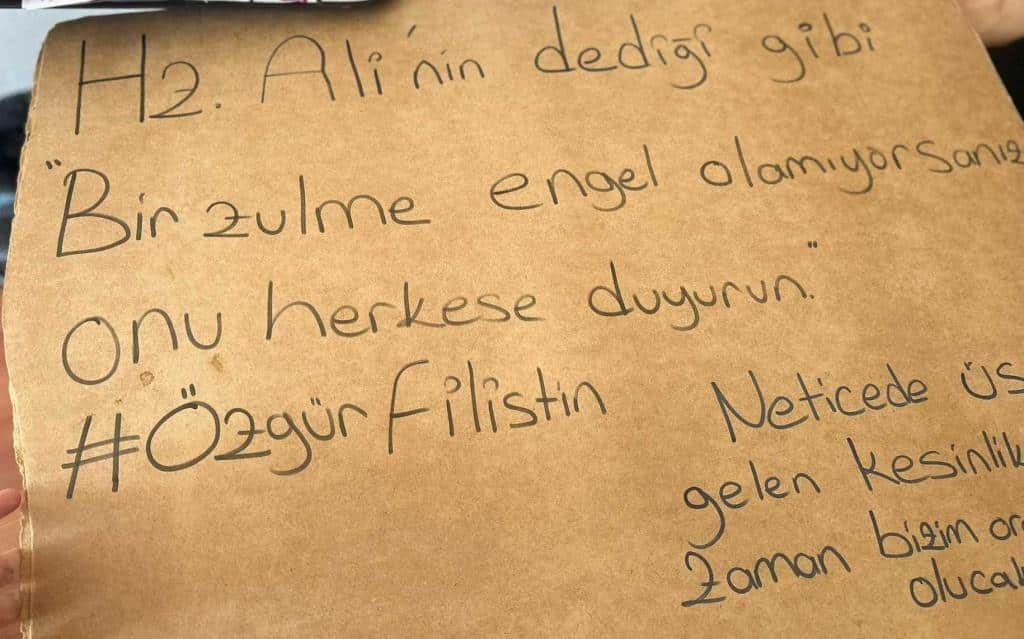 Hz. Ali'nin dediği gibi
"Bir zulme engel olamıyorsanız
onu herkese duyurun."
#Özgür filistin
Neticede
gelen
zaman bizim